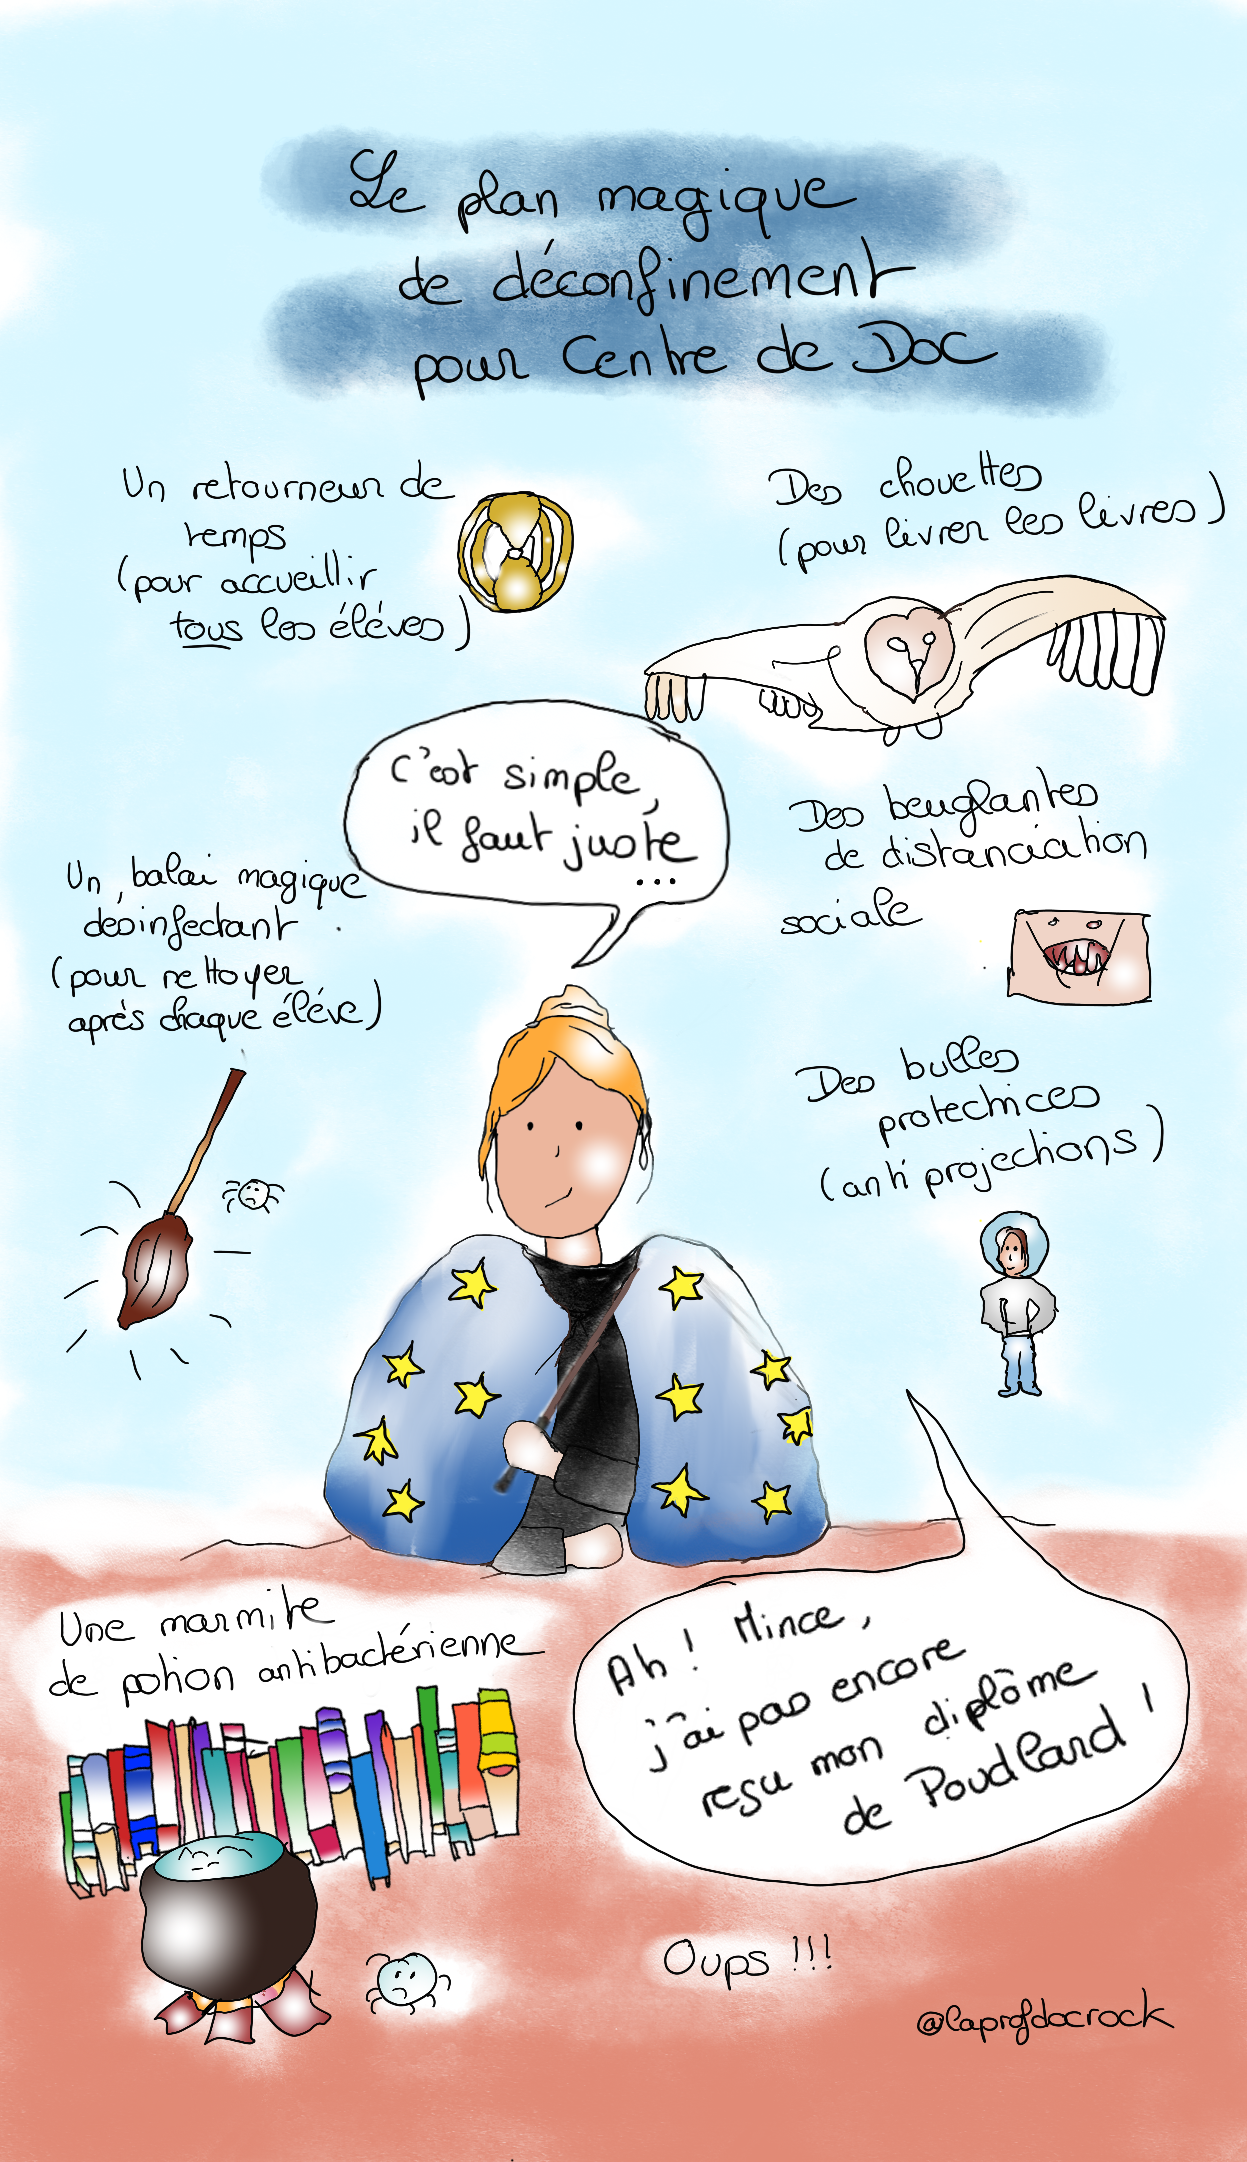 Le plan magique
de déconfinement
pour Centre de Doc
Un retourneur de
temps
(pour accueillir
tous les éléves)
Des chouettes
(pour livrer les livres)
C'est simple,
il faut juste
...
Des beuglantes
de distanciation
sociale
Un balai magique
désinfectant
(pour nettoyer
après chaque éléve)
Des bulles
protectrices
(anti projections)
Une marmite
de potion antibactérienne
Ah ! Mince,
j'ai pas encore
reçu mon diplôme
de Poudlard !
Oups !!!
@laprofdocrock